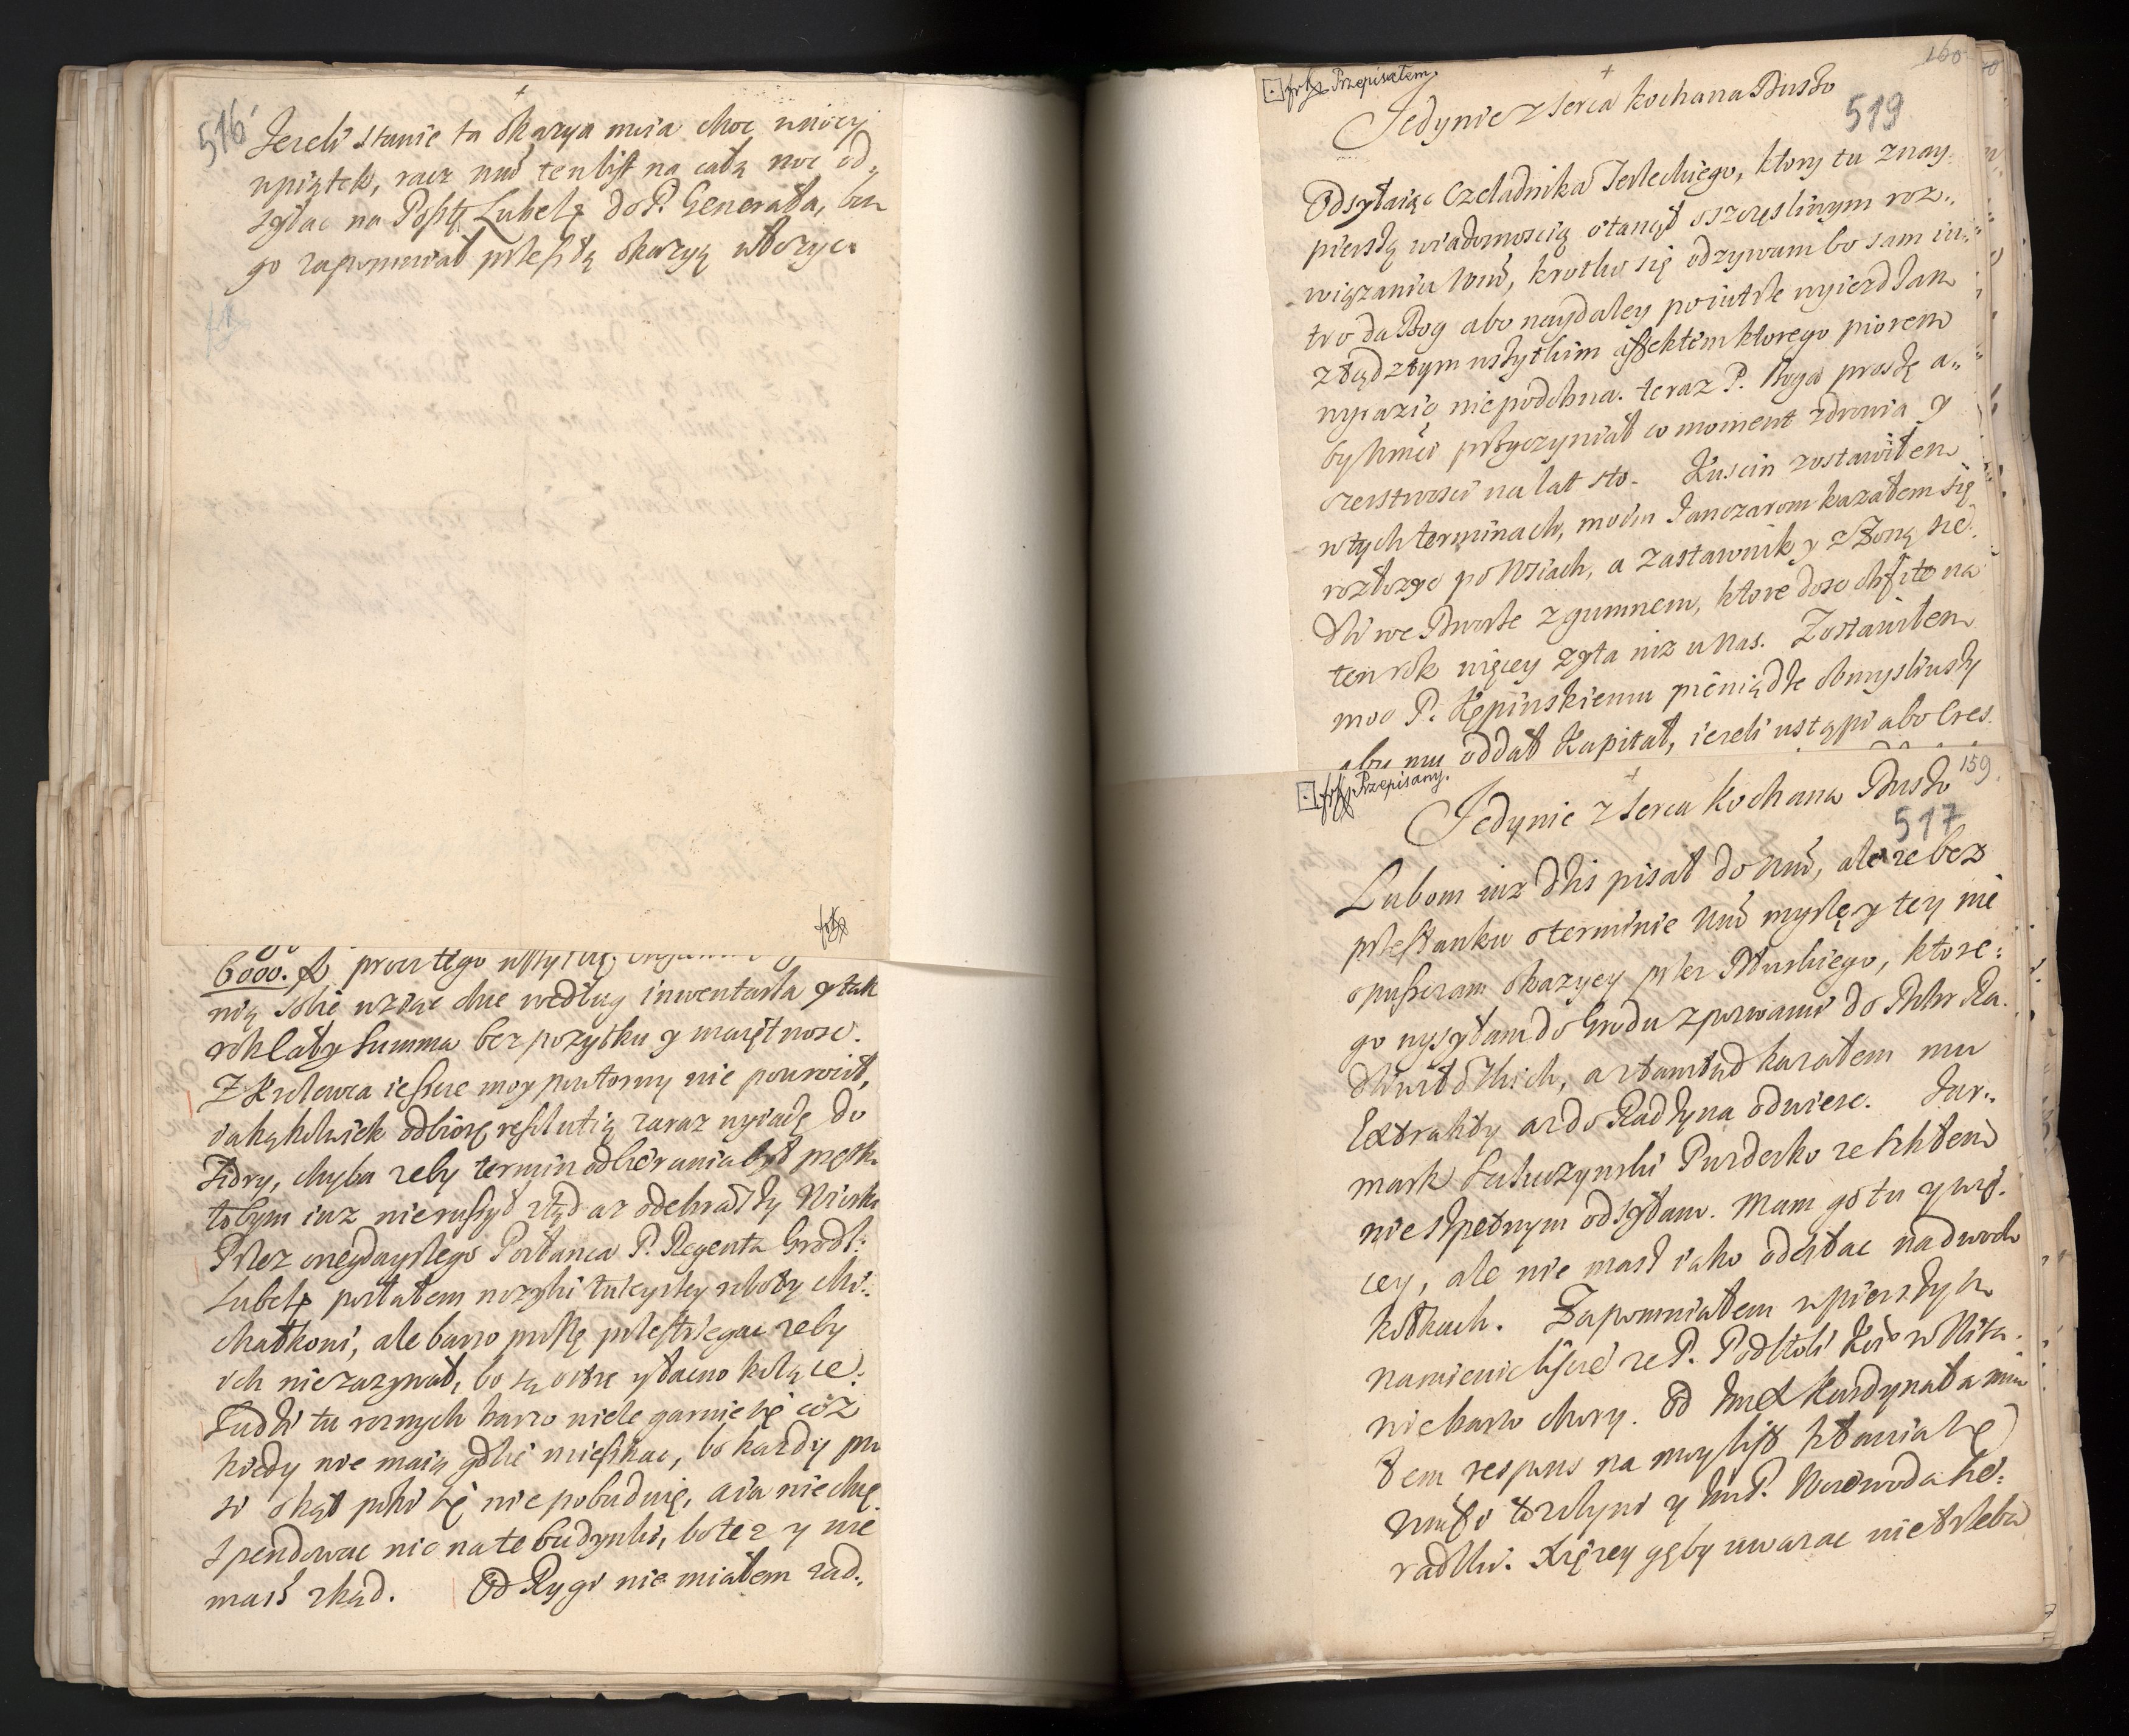 516
+
Jezeli stanie ta okazya mia choc w nocy
w piątek, racz mś ten list na całą noc od„
sylac na Posztę Lubelz do P. Generała, bom
go zapomniał przeszłą okazyą włozyc.
6000. proez tego
nią sobie wziąc chce według inwentarza y tak
rok cały Summa bez pozytku y maiętnosc.
Z Krolewca ieszcze moy putorny nie powrocił,
iakąkolwiek odbiorę resolutią zaraz wyiadę do
Zidry, chyba zeby termin odbierania był prętk.
tobym iuz nie ruszył ztąd az odebrawszy
Przez onegdayszego Posłanca P. Regenta Grodz:
Lubelz posłałem nozyki tuteyszey roboty chi„
chatkowi, ale barzo proszę przestrzegac zeby
ich niezazywał, bo są ostre y łacno kolące.
Ludzi tu roznych barzo wiele garnie się coz
kiedy nie maią gdzie mieszkac, bo kazdy pu
si okąt poki się nie pobuduię, a ia nie chcę
spendowac nic na te budynki, bo tez y nie
masz zkąd. Od Rygi nie miałem zad„
160
Przepisałem.
+
Jedynie z serca kochana Duszo
519
Odsyłaiąc Czeladnika Terleckiego, ktory tu z nay„
pierszą wiadomoscią stanął o szczęsliwym roz„
wiązaniu Wm, krotko się odzywam bo sam iu„
tro da Bog abo naydaley poiutrze wyiezdzam
ztąd z tym wszytkim affektem ktorego piorem
wyrazic niepodobna. teraz P. Boga proszę a„
by Wmci przyczyniał co moment zdrowia y
czerstwosci na lat sto. Kuscin zostawiłem
w tych terminach, moim Janczarom kazałem się
rozłozyc po Wsiach, a zastawnik y z Zoną sie„
dzi we Dworze z gumnem, ktore dosc obfite na
ten rok więcey zyta niz u nas. Zostawiłem
moc P. Kępinskiemu pieniądze obmysliwszy
aby mu oddał Kapitał, iezeli ustąpi abo Cres.
159.
Przepisany.
+
Jedynie z serca kochana Duszo
517
Lubom iuz dzis pisał do Wm, ale ze bez
przestanku o terminie Wm myslę y tey nie
opuszczam okazyey przez Dłuskiego, ktore„
go wysyłam do Grodu z pozwami do Ra„
a ztamtąd kazałem mu
Extrakty az do Radzyna odwiesc. Jar„
mark Łukuczynski Purdesko ze szkłem
nie zpełnym odsyłam. Mam go tu y wię„
cey, ale nie masz iako odesłac na dwoch
kołkach. Zapomniałem w pierszym
namienic liscie ze P. Podstoli w Wita„
nie barzo chory. Od Xcia Kardynała mia
łem respons na moy list kłania się
y P. Woiewoda Sie„
radzki. Xięzey gęby uwazac nie trzeba